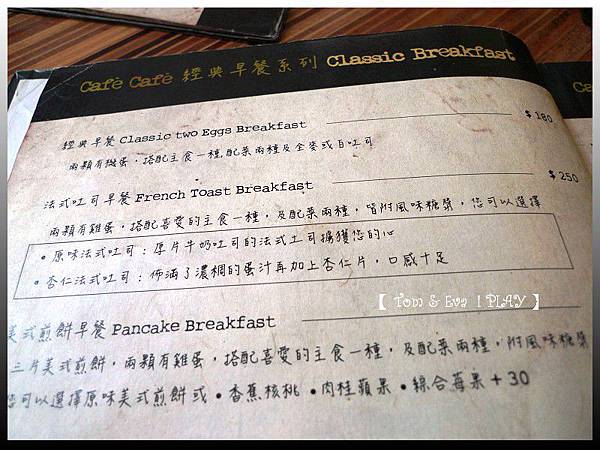 Café Café 經典早餐系列 Classic Breakfast
Ca
經典早餐 Classic two Eggs Breakfast $180
兩顆有雞蛋，搭配主食一種,配菜兩種及全麥或白吐司
法式吐司早餐 French Toast Breakfast $250
兩顆有雞蛋，搭配喜愛的主食一種，及配菜兩種，皆附風味糖漿，您可以選擇
• 原味法式吐司：厚片牛奶吐司的法式土司擄獲您的心
• 杏仁法式吐司：佈滿了濃稠的蛋汁再加上杏仁片，口感十足
【 Tom & Eva 1 PLAY 】
美式煎餅早餐 Pancake Breakfast
三片美式煎餅，兩顆有雞蛋，搭配喜愛的主食一種，及配菜兩種，附風味糖漿
您可以選擇原味美式煎餅或 • 香蕉核桃 • 肉桂蘋果 • 綜合莓果 + 30